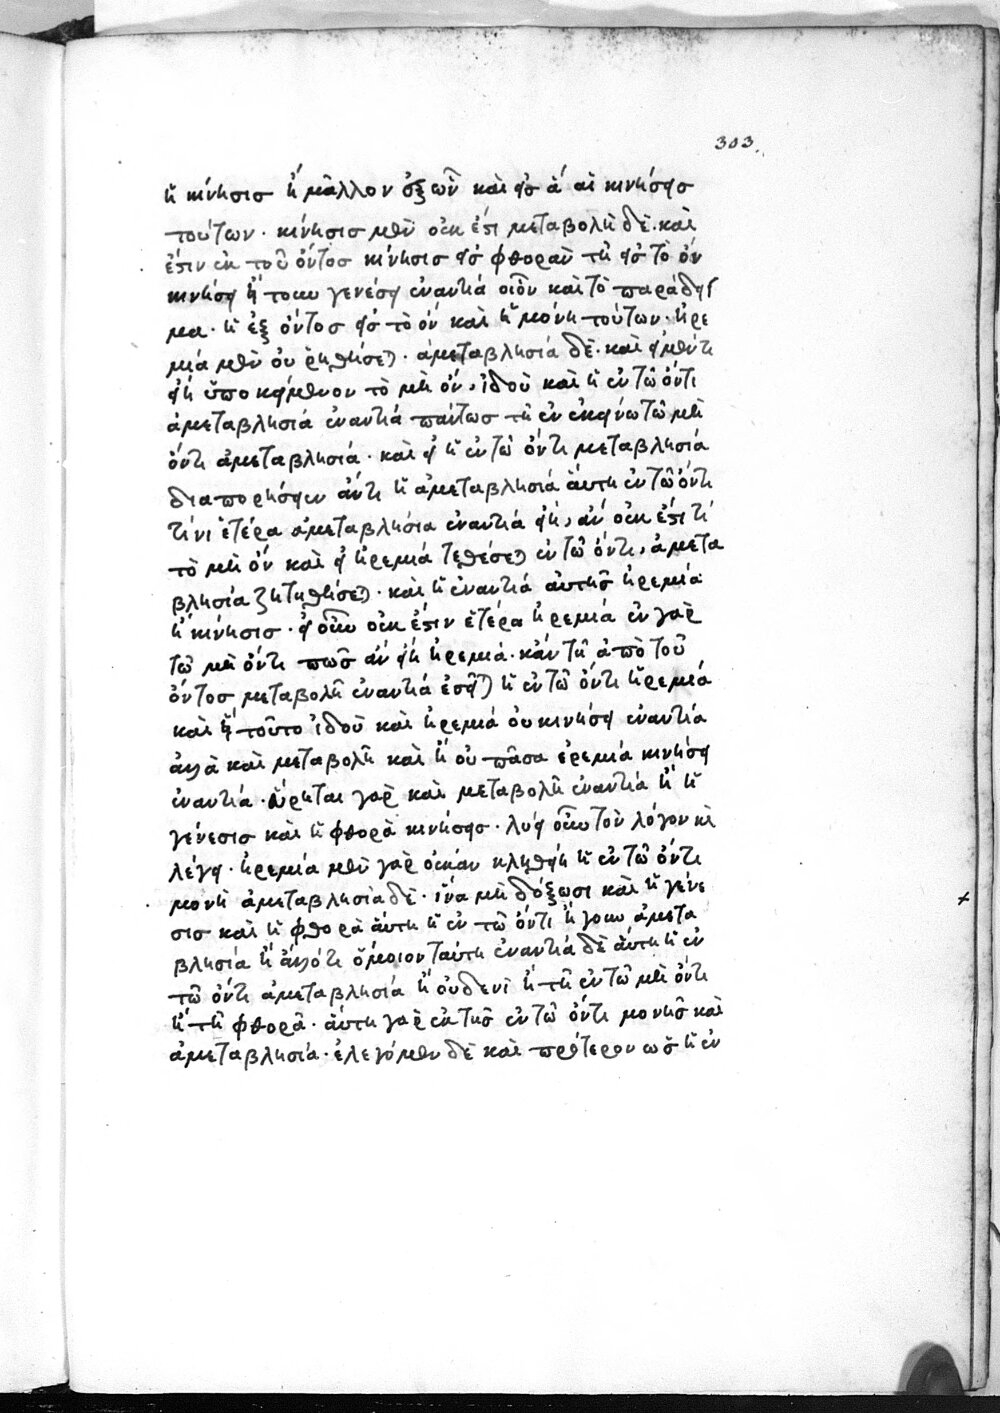 303.
ἡ κίνησις ἢ μᾶλλον ἐξ ὧν καὶ εἰς ἃ αἱ κινήσεις
τούτων· κίνησις μὲν οὐκ ἔστι μεταβολὴ δὲ· καὶ
ἔστιν ἐκ τοῦ ὄντος κίνησις εἰς φθορὰν τῇ εἰς τὸ ὂν
κινήσει ἤτοι γενέσει ἐναντία οἷον καὶ τὸ παράδειγ
μα· ἡ ἐξ ὄντος εἰς τὸ ὂν καὶ ἡ μόνη τούτων· ἠρε
μία μὲν οὐ ῥηθήσεται· ἀμεταβλησία δὲ· καὶ εἰ μέντι
εἴη ὑποκείμενον τὸ μὴ ὄν, ἰδοὺ καὶ ἡ ἐν τῷ ὄντι
ἀμεταβλησία ἐναντία πάντως τῇ ἐν ἐκείνῳ τῷ μὴ
ὄντι ἀμεταβλησία· καὶ εἰ ἡ ἐν τῷ ὄντι μεταβλησία
διαπορήσειεν ἄν τι ἡ ἀμεταβλησία αὕτη ἐν τῷ ὄντι
τίνι ἑτέρα ἀμεταβλησία ἐναντία εἴη, ἂν οὐκ ἔστι τί
τὸ μὴ ὂν καὶ εἰ ἠρεμία τεθέσεται ἐν τῷ ὄντι, ἀμετα
βλησία ζητηθήσεται· καὶ ἡ ἐναντία αὐτῆς ἠρεμία
ἢ κίνησις· εἰ οὖν οὐκ ἔστιν ἑτέρα ἠρεμία ἐν γὰρ
τῷ μὴ ὄντι πῶς ἂν εἴη ἠρεμία· κἂν τῇ ἀπὸ τοῦ
ὄντος μεταβολῇ ἐναντία ἐσεῖται ἡ ἐν τῷ ὄντι ἠρεμία
καὶ εἰ τοῦτο ἰδοὺ καὶ ἠρεμία οὐ κινήσει ἐναντία
ἀλλὰ καὶ μεταβολῇ καὶ ἢ οὐ πᾶσα ἐρεμία κινήσει
ἐναντία· εἴρηται γὰρ καὶ μεταβολῇ ἐναντία ἢ ἡ
γένεσις καὶ ἡ φθορὰ κινήσεις· λύει οὖν τὸν λόγον καὶ
λέγει· ἠρεμία μὲν γὰρ οὐκ ἂν κληθείη ἡ ἐν τῷ ὄντι
μονὴ ἀμεταβλησία δὲ· ἵνα μὴ δόξωσι καὶ ἡ γένε
σις καὶ ἡ φθορὰ αὕτη ἡ ἐν τῷ ὄντι ἤγουν ἀμετα
βλησία ἢ ἄλλό τι ὅμοιον ταύτη ἐναντία δὲ αὕτη ἡ ἐν
τῷ ὄντι ἀμεταβλησία ἢ οὐδενὶ ἢ τῇ ἐν τῷ μὴ ὄντι
ἢ τῇ φθορᾷ· αὕτη γὰρ ἐκ τῆς ἐν τῷ ὄντι μονῆς καὶ
ἀμεταβλησία· ἐλεγόμεν δὲ καὶ πρότερον ὡς ἡ ἐν